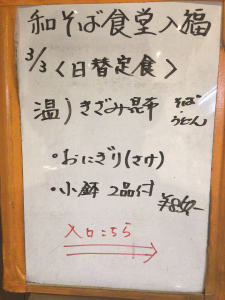 和そば食堂入福
3/3 <日替定食>
温) きざみ昆布 そば・うどん
・おにぎり(さけ)
・小鉢 2品付 ¥850-
入口こちら